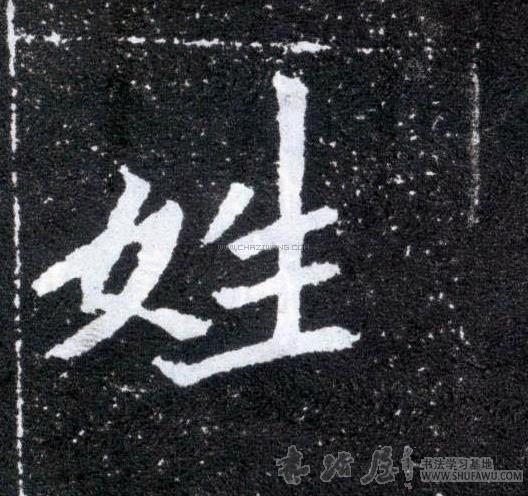 姓
WWW.CHAZIWANG.COM
书法学习基地
WWW.SHUFAWU.COM